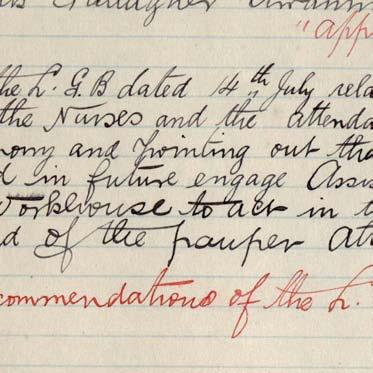 Gallagher
"app
the L. G. B dated 14th July rela
the Nurses and the attenda
nomy and pointing out tha
d in future engage Assis
Workhouse to act in t
d of the pauper att
commendations of the L.